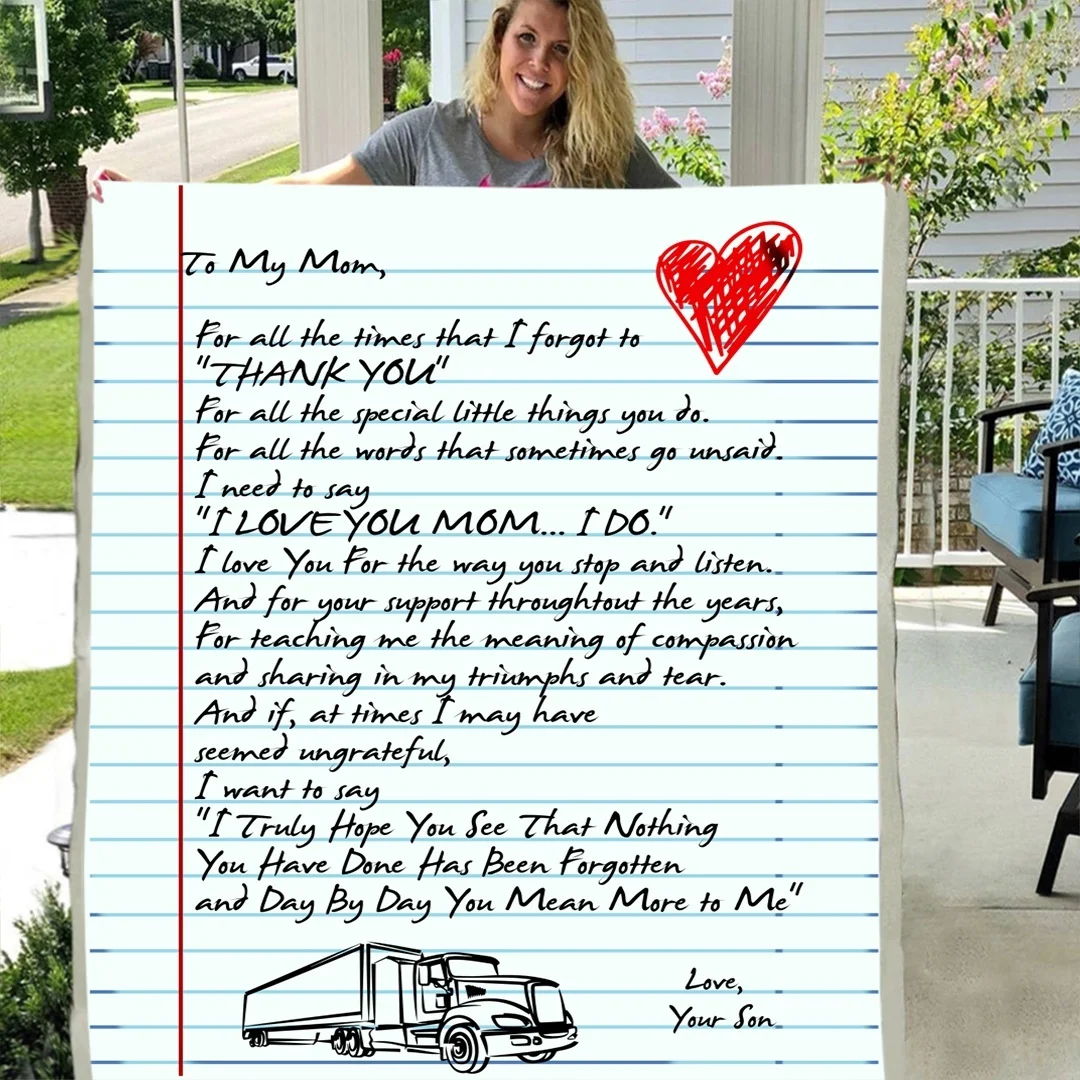 To My Mom,
For all the times that I forgot to
"THANK YOU"
For all the special little things you do.
For all the words that sometimes go unsaid.
I need to say
"I LOVE YOU MOM... I DO."
I love You For the way you stop and listen.
And for your support throughtout the years,
For teaching me the meaning of compassion
and sharing in my triumphs and tear.
And if, at times I may have
seemed ungrateful,
I want to say
"I Truly Hope You See That Nothing
You Have Done Has Been Forgotten
and Day By Day You Mean More to Me"
Love,
Your Son